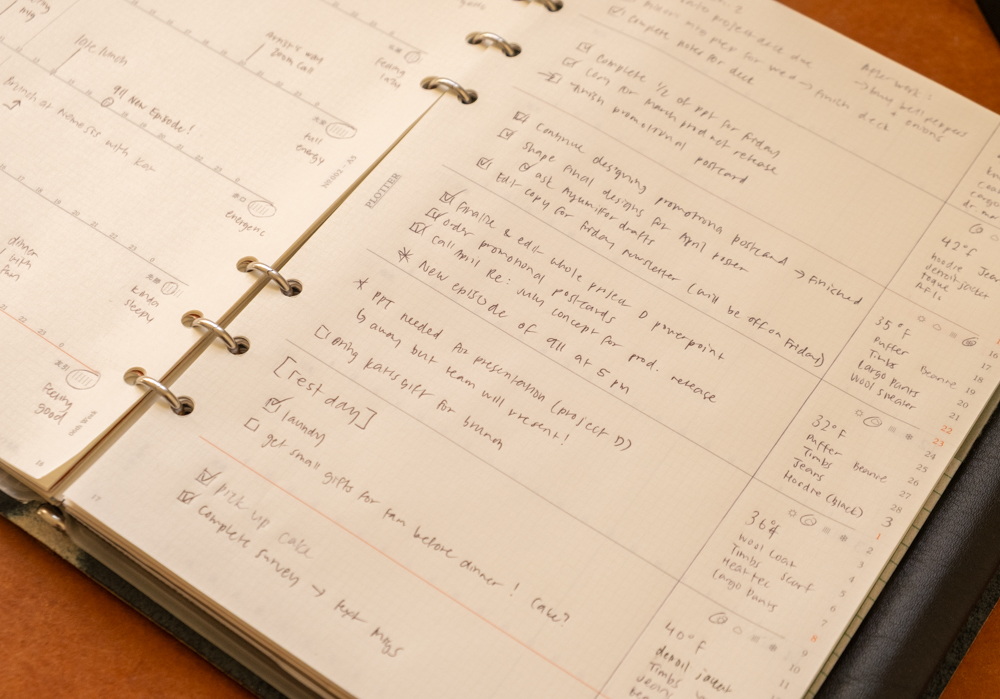 late lunch
911 New Episode!
Brunch at Mimosas with Kar
Zoom call
Feeling lazy
full energy
energetic
dinner with fam
kinda sleepy
Feeling good
06th Week
16
NO.002 - A5
PLOTTER
complete notes for deck
→ finish deck
After work:
→ buy bell peppers + onions
complete 1/2 of ppt for Friday
copy for March product release
→ finish promotional postcard
continue designing promotional postcard → finished
shape final designs for April poster
ask Ayumi for drafts
Edit copy for Friday newsletter (will be off on Friday)
finalize & edit whole project D powerpoint
order promotional postcards
call April Re: July concept for prod. release
* New episode of 911 at 5 PM
* PPT needed for presentation (project D)
↳ away but team will present!
bring Kar's gift for brunch
[rest day]
laundry
get small gifts for fam before dinner! Cake?
pick up cake
complete survey → text Migs
17
42°F
hoodie Jeans
denim jacket
toque
AF1s
35°F
Puffer Beanie
Timbs
Cargo Pants
Wool sweater
32°F
Puffer Beanie
Timbs
Jeans
Hoodie (black)
36°F
Wool Coat
Timbs Scarf
Heattec
Cargo Pants
40°F
denim jacket
Timbs
Jeans
16
17
18
19
20
21
22
23
24
25
26
27
28
3
1
2
3
4
5
6
7
8
9
10
11